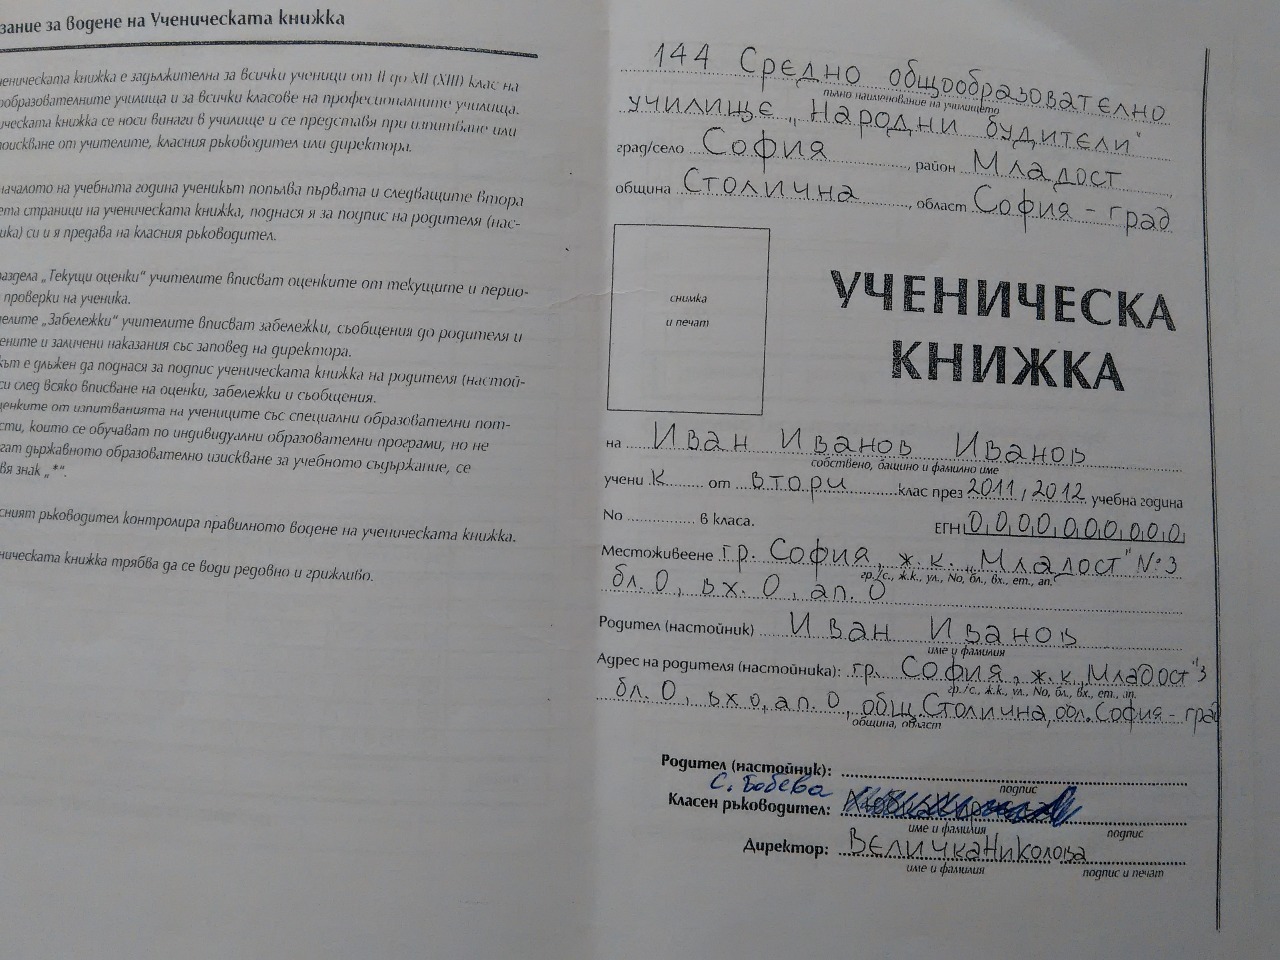 зание за водене на Ученическата книжка
ученическата книжка е задължителна за всички ученици от II до XII (XIII) клас на
образователните училища и за всички класове на професионалните училища.
ческата книжка се носи винаги в училище и се представя при изпитване или
поискване от учителите, класния ръководител или директора.
началото на учебната година ученикът попълва първата и следващите втора
ета страници на ученическата книжка, поднася я за подпис на родителя (нас-
ика) си и я предава на класния ръководител.
раздела „Текущи оценки“ учителите вписват оценките от текущите и перио-
проверки на ученика.
елите „Забележки“ учителите вписват забележки, съобщения до родителя и
ените и заличени наказания със заповед на директора.
кът е длъжен да поднася за подпис ученическата книжка на родителя (настой-
си след всяко вписване на оценки, забележки и съобщения.
ценките от изпитванията на учениците със специални образователни пот-
сти, които се обучават по индивидуални образователни програми, но не
гат държавното образователно изискване за учебното съдържание, се
вя знак „*“.
сният ръководител контролира правилното водене на ученическата книжка.
ническата книжка трябва да се води редовно и грижливо.
144 Средно общообразователно
пълно наименование на училището
училище „Народни будители“
град/село София, район Младост
община Столична, област София - град
снимка
и печат
УЧЕНИЧЕСКА
КНИЖКА
на Иван Иванов Иванов
собствено, бащино и фамилно име
учени к от втори клас през 2011/2012 учебна година
No в класа. ЕГН 0000000000
Местоживеене гр. София, ж.к. „Младост“ №3
гр./с., ж.к., ул., No, бл., вх., ет., ап.
бл. 0, вх. 0, ап. 0
Родител (настойник) Иван Иванов
име и фамилия
Адрес на родителя (настойника): гр. София, ж.к. „Младост“ 3
гр./с., ж.к., ул., No, бл., вх., ет., ап.
бл. 0, вх 0, ап. 0, общ. Столична, обл. София - град
община, област
Родител (настойник):
подпис
С. Бобева
Класен ръководител:
име и фамилия подпис
Директор: Величка Николова
име и фамилия подпис и печат